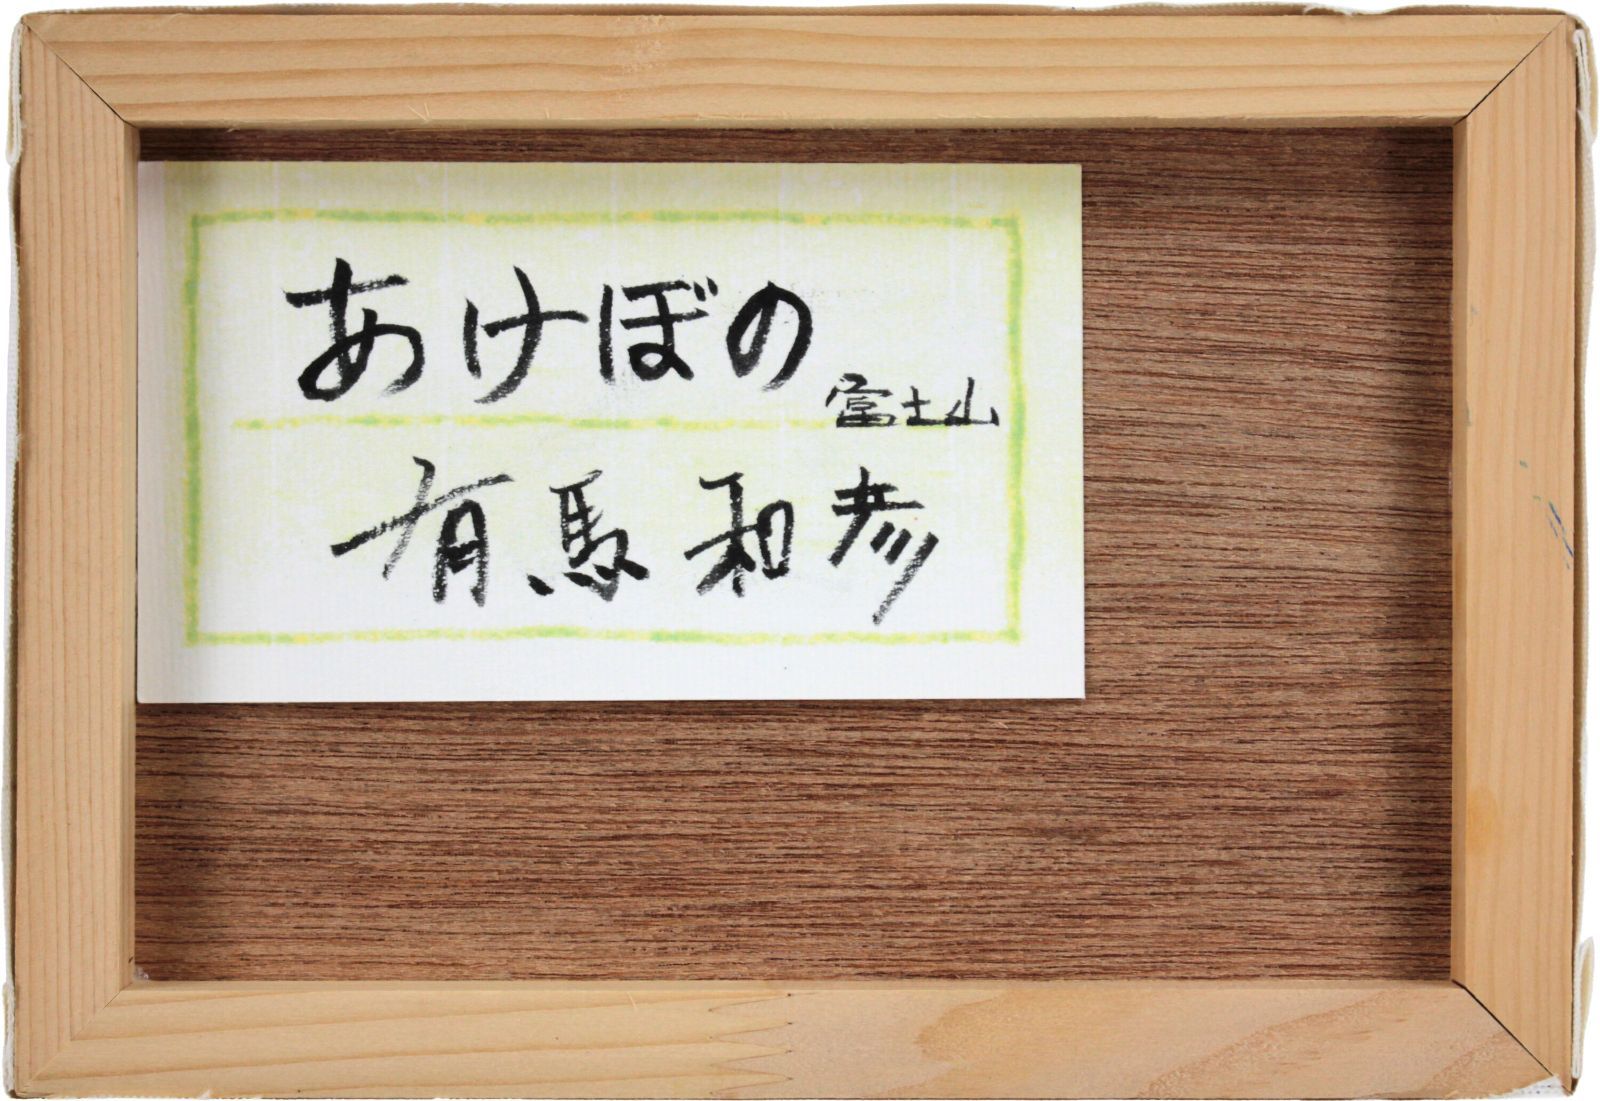 あけぼの
富士山
有馬和彦